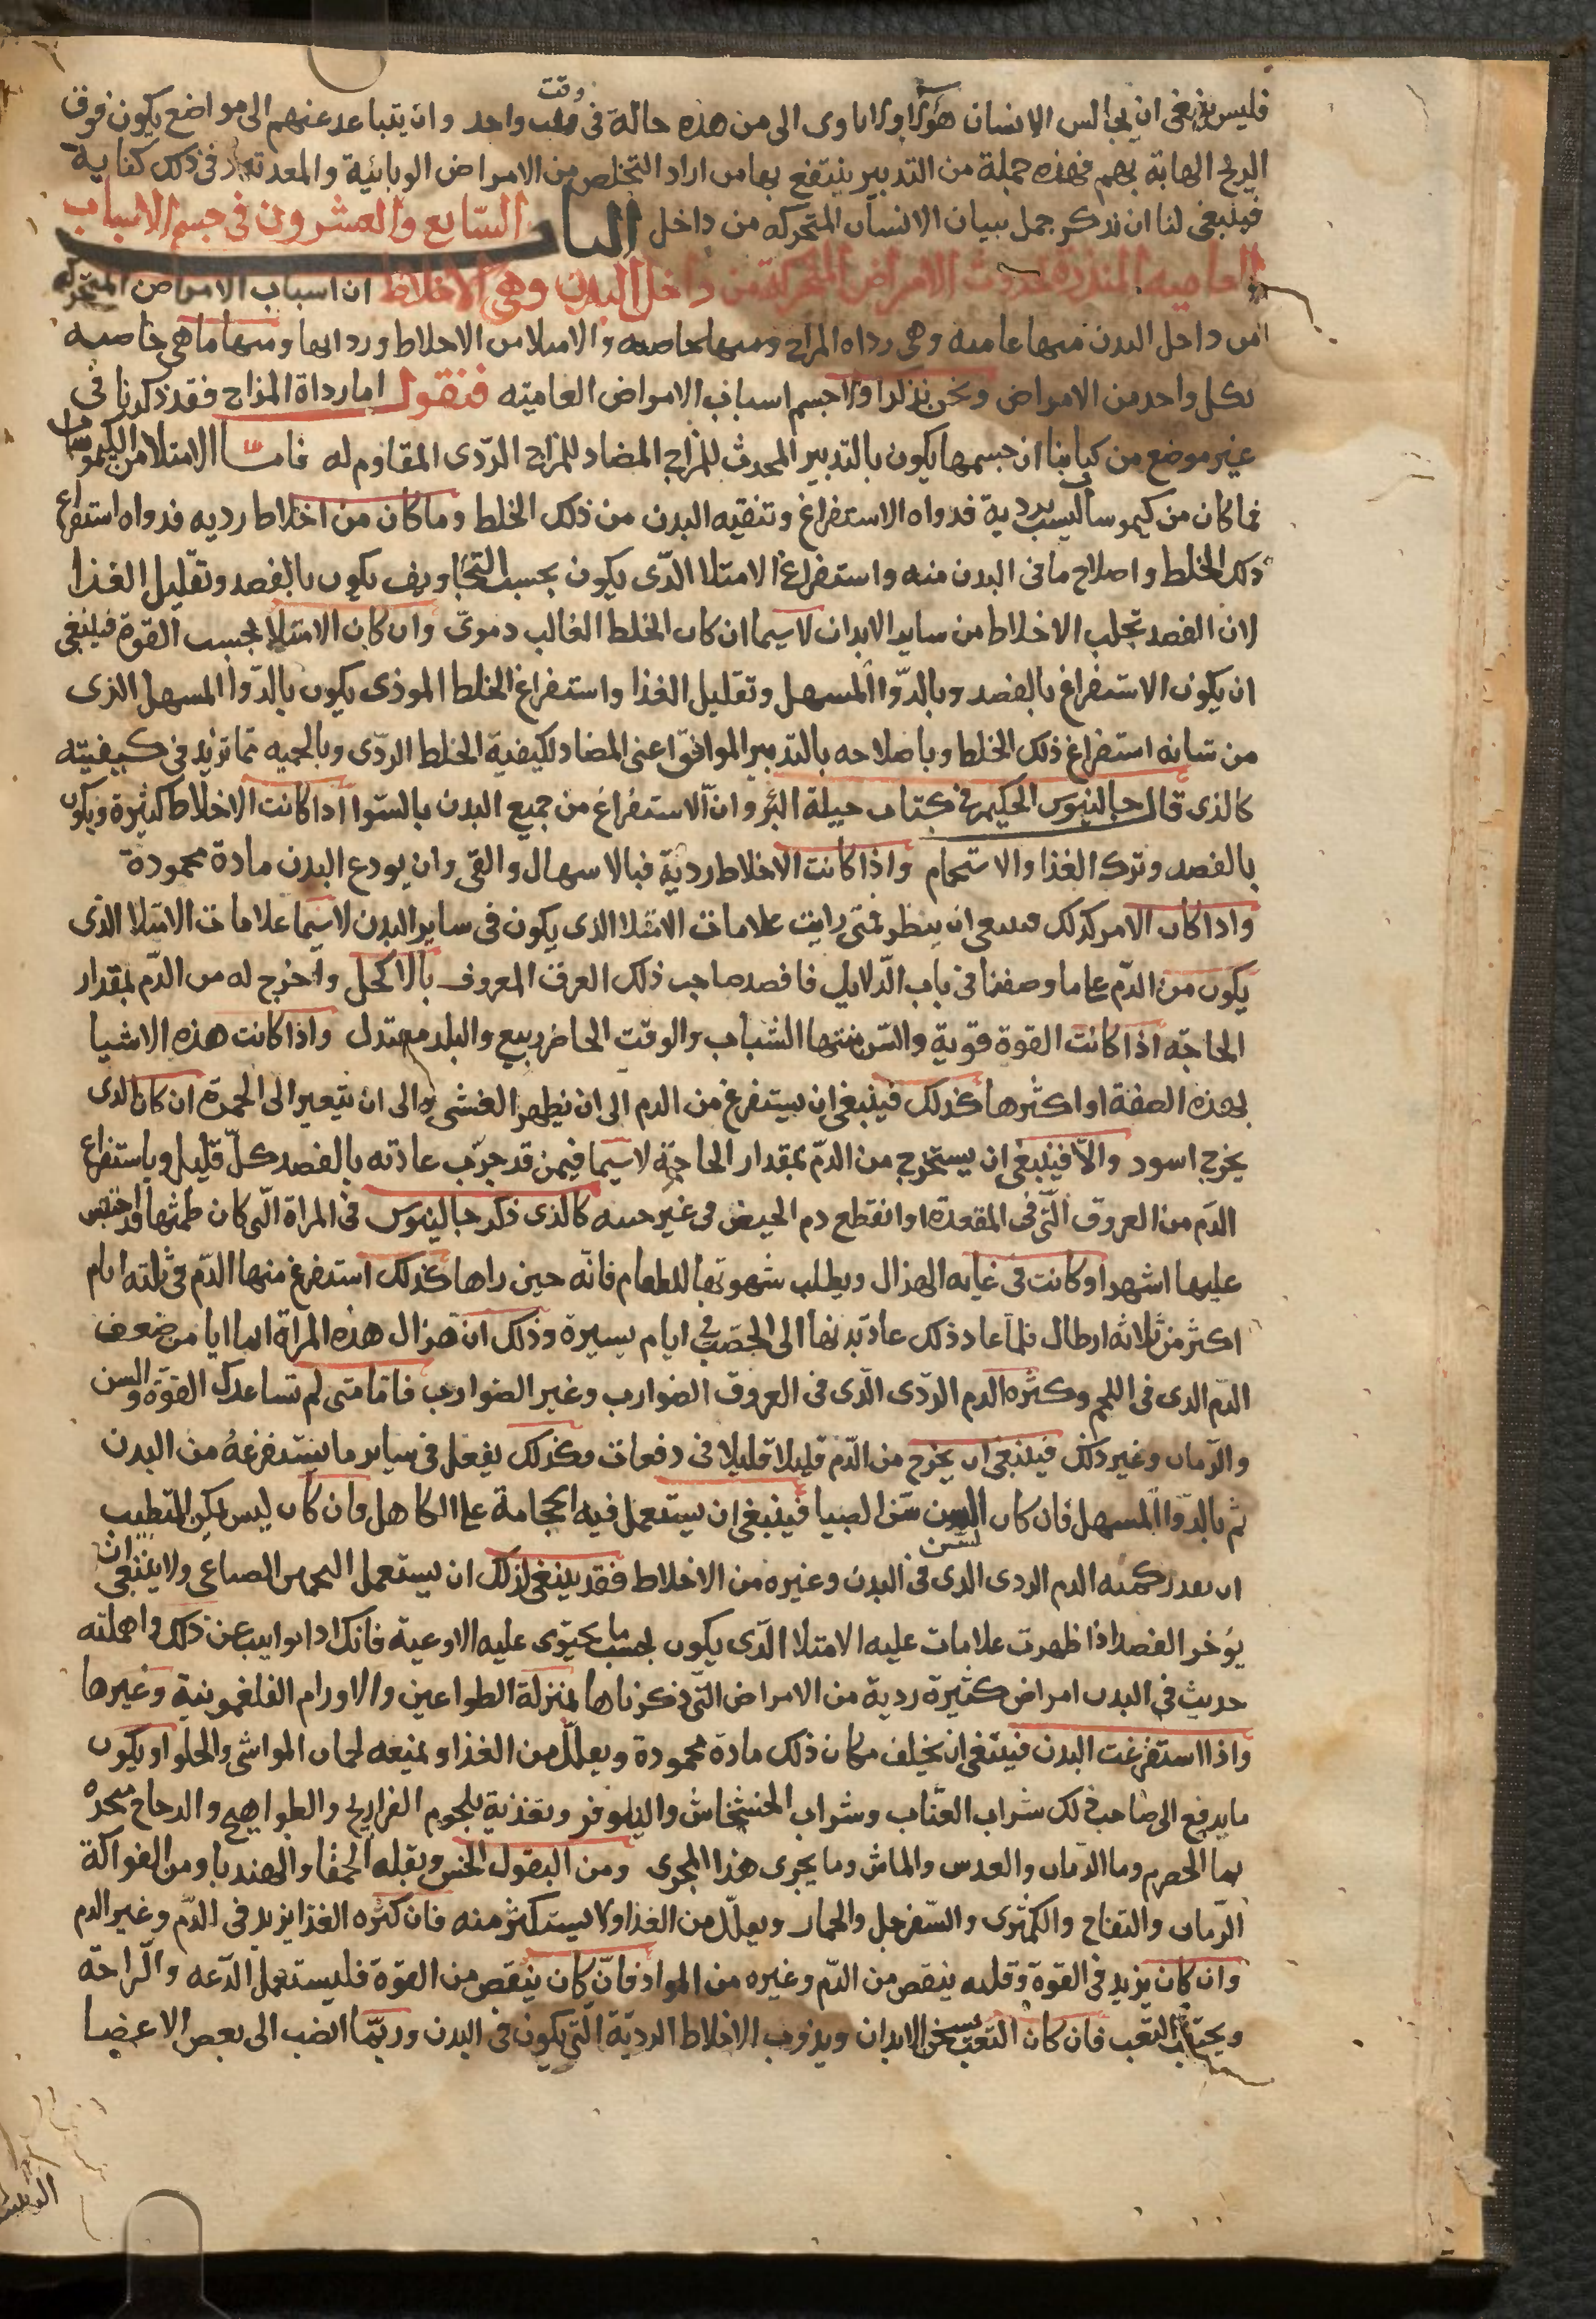 فليس ينبغي ان يجالس الانسان هؤلاء ولا ياوى الى من هذه حالة فى وقت واحد وان يتباعد عنهم الى مواضع يكون فوق
الريح الهابة بهم فهذه جملة من التدبير ينتفع بها من اراد التخلص من الامراض الوبائية والمعدية وفى ذلك كفاية
فينبغى لنا ان نذكر جمل بيان الانسان المتحركه من داخل الباب السابع والعشرون فى حسم الاسباب
العاميه المنذرة بحدوث الامراض المتحركة من داخل البدن وهى الاخلاط ان اسباب الامراض المتحركه
من داخل البدن منها عاميه وهى رداه المزاج ومنها خاصه والامتلا من الاخلاط ورداتها ومنها ما هى خاصيه
بكل واحد من الامراض ونحن نذكر اولا حسم اسباب الامراض العاميته فنقول اما رداة المزاج فقد ذكرنا فى
غير موضع من كتابنا ان حسمها يكون بالتدبير المحدث للمزاج المضاد للمزاج الردى المقاوم له فاما الامتلا من الكيموسات
فما كان من كيموسات ليست بردية فدواه الاستفراغ وتنقيه البدن من ذلك الخلط وما كان من اخلاط رديه فدواه استفراغ
ذلك الخلط واصلاح ما فى البدن منه واستفراغ الامتلا الذى يكون بحسب التجاويف يكون بالفصد وتقليل الغذا
لان الفصد تجلب الاخلاط من ساير الابدان لاسيما ان كان الخلط الغالب دموى وان كان الامتلا بحسب القوة فينبغى
ان يكون الاستفراغ بالفصد وبالدوا المسهل وتقليل الغذا واستفراغ الخلط الموذى يكون بالدوا المسهل الذى
من شانه استفراغ ذلك الخلط وباصلاحه بالتدبير الموافق اعنى المضاد لكيفية الخلط الردى وبالحميه مما تزيد فى كيفيته
كالذى قال جالينوس الحكيم فى كتاب حيلة البرؤ وان الاستفراغ من جميع البدن بالسوا اذا كانت الاخلاط كثيرة ويكون
بالفصد وترك الغذا والاستحمام واذا كانت الاخلاط ردية فبالاسهال والقى وان يودع البدن مادة محمودة
واذا كان الامر كذلك فينبغى ان ينظر فمتى رايت علامات الامتلا الذى يكون فى ساير البدن لاسيما علامات الامتلا الذى
يكون من الدم على ما وصفنا فى باب الدلايل فافصد صاحب ذلك العرق المعروف بالاكحل واخرج له من الدم بمقدار
الحاجة اذا كانت القوة قوية والسن منتها الشباب والوقت الحاضر ربيع والبلد معتدل واذا كانت هذه الاشيا
بهذه الصفة او اكثرها كذلك فينبغى ان يستفرغ من الدم الى ان يظهر الغشى والى ان يتغير الى الحمرة ان كان الذى
يخرج اسود والا فينبغى ان يستخرج من الدم بمقدار الحاجة لاسيما فيمن قد جرب عادته بالفصد كل قليل وباستفراغ
الدم من العروق التى فى المقعدة او انقطع دم الحيض فى غير حينه كالذى ذكر جالينوس فى المراة التى كان طمثها قد احتبس
عليها اشهرا وكانت فى غايه الهزال وبطلت شهوتها للطعام فانه حين راها كذلك استفرغ منها الدم فى ثلثه ايام
اكثر من ثلاثه ارطال فلما عاد ذلك عاد بدنها الى الخصب فى ايام يسيرة وذلك ان هزال هذه المراة انما اتا من ضعف
الدم الذى فى اللحم وكثره الدم الردى الذى فى العروق الضوارب وغير الضوارب فاما متى لم تساعدك القوة والسن
والزمان وغير ذلك فينبغى ان يخرج من الدم قليلا قليلا فى دفعات وكذلك يفعل فى ساير ما يستفرغه من البدن
ثم بالدوا المسهل فان كان السن سن الصبيا فينبغى ان يستعمل فيه الحجامة على الكاهل وان كان ليس يمكن المتطبب
ان يقدر كميه الدم الردى الذى فى البدن وغيره من الاخلاط فقد ينبغى لذلك ان يستعمل الصناعى ولا ينبغى ان
يؤخر الفصد اذا ظهرت علامات عليه الامتلا الذى يكون بحسب ما يحتوى عليه الاوعية فانك اذا توانيت عن ذلك واهملته
حديث فى البدن امراض كثيرة ردية من الامراض التى ذكرناها بمنزلة الطواعين والاورام الفلغمونية وغيرها
واذا استفرغت البدن فينبغى ان يخلف مكان ذلك مادة محمودة ويعلل من الغذا ويمنعه لحمان المواشى والحلوا ويكون
ما يدفع الى صاحب ذلك شراب العناب وشراب الخشخاش والنيلوفر وتغذية بلحوم الفراريج والطواهيج والدجاج متخذه
بما الحصرم وما الرمان والعدس والماش وما يجرى هذا المجرى ومن البقول الخس وبقله الحمقا والهندبا ومن الفواكة
الرمان والتفاح والكمثرى والسفرجل والخيار ويعلل من الغذا ولا يستكثر منه فان كثره الغذا يزيد فى الدم وغير الدم
وان كان يزيد فى القوة وقلته ينقص من الدم وغيره من المواد فان كان ينقص من القوة فليستعمل الدعه والراحة
ويجتنب التعب فان كان التعب يسخن الابدان ويذوب الاخلاط الردية التى يكون فى البدن وربما انصب الى بعض الاعضا